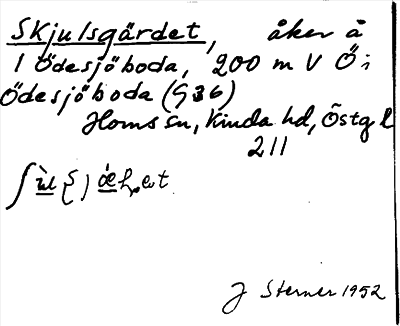 Skjulsgärdet, åker å
1 Ödesjöboda, 200 m V Ö i
Ödesjöboda (G 36)
Horns sn, Kinda hd, Östg l
211
J Sterner 1952